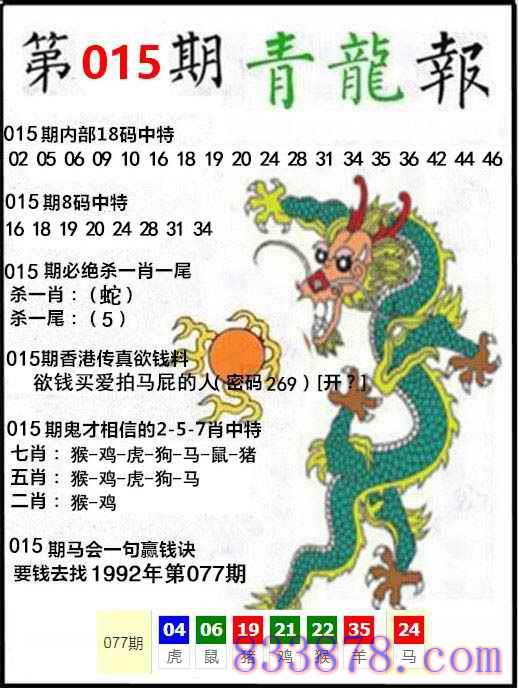 第015期青龍報
015期内部18码中特
02 05 06 09 10 16 18 19 20 24 28 31 34 35 36 42 44 46
015期8码中特
16 18 19 20 24 28 31 34
015期必绝杀一肖一尾
杀一肖：（蛇）
杀一尾：（5）
015期香港传真欲钱料
欲钱买爱拍马屁的人(密码269）[开？]
015期鬼才相信的2-5-7肖中特
七肖：猴-鸡-虎-狗-马-鼠-猪
五肖：猴-鸡-虎-狗-马
二肖：猴-鸡
015期马会一句赢钱诀
要钱去找1992年第077期
077期 04 06 19 21 22 35 24
虎 鼠 猪 鸡 猴 羊 马
833878.com